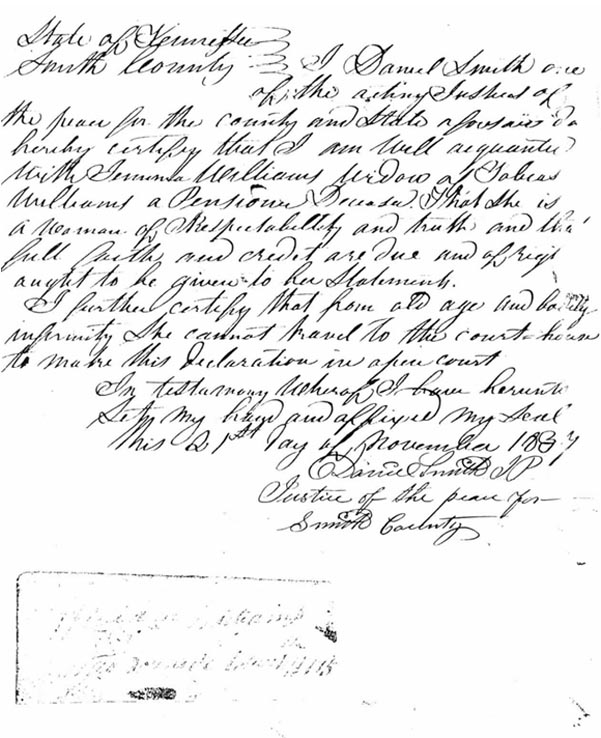 State of Tennessee
Smith County I Daniel Smith one
of the acting Justices of
the peace for the county and State aforesaid do
hereby certify that I am well acquanted
with Jemima Williams Widow of Tobias
Williams a Pensioner Deceasd. That she is
a woman of Respectability and truth and that
full faith and credit are due and of right
aught to be given to her Statements.
I further certify that from old age and bodily
infirmity She cannot travel to the court-house
to make this declaration in open court
In testimony Whereof I have herunto
Set my hand and affixed my Seal
this 21st day of November 1837
Daniel Smith JP
Justice of the peace for
Smith County